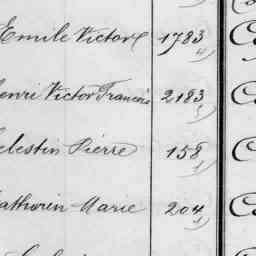 Emile Victor 1783
Henri Victor Francois 2183
Celestin Pierre 158
Mathurin Marie 204